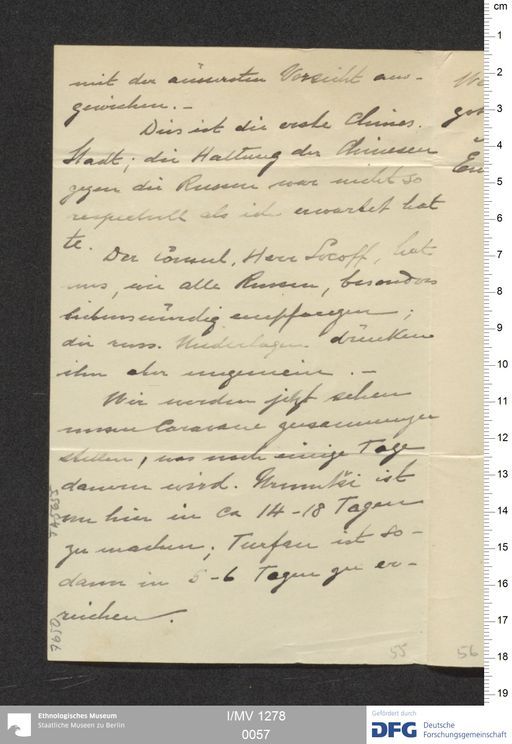 mit der äussersten Vorsicht aus-
gewichen. –
Dies ist die erste Chines.
Stadt; die Haltung der Chinesen
gegen die Russen war nicht so
respectvoll als ich erwartet hat
te.
Der Consul, Herr Socoff, hat
uns, wie alle Russen, besonders
liebenswürdig empfangen;
die russ. Niederlagen drücken
ihn aber ungemein. –
Wir werden jetzt sehen
unsere Caravane zusammenzu
stellen, was noch einige Tage
dauern wird. Urumtsi ist
von hier in ca 14-18 Tagen
zu machen; Turfan ist so-
dann in 5-6 Tagen zu er-
reichen.
TA 5655
7650
55
56
cm
1
2
3
4
5
6
7
8
9
10
11
12
13
14
15
16
17
18
19
Ethnologisches Museum
Staatliche Museen zu Berlin
I/MV 1278
0057
Gefördert durch
DFG
Deutsche
Forschungsgemeinschaft